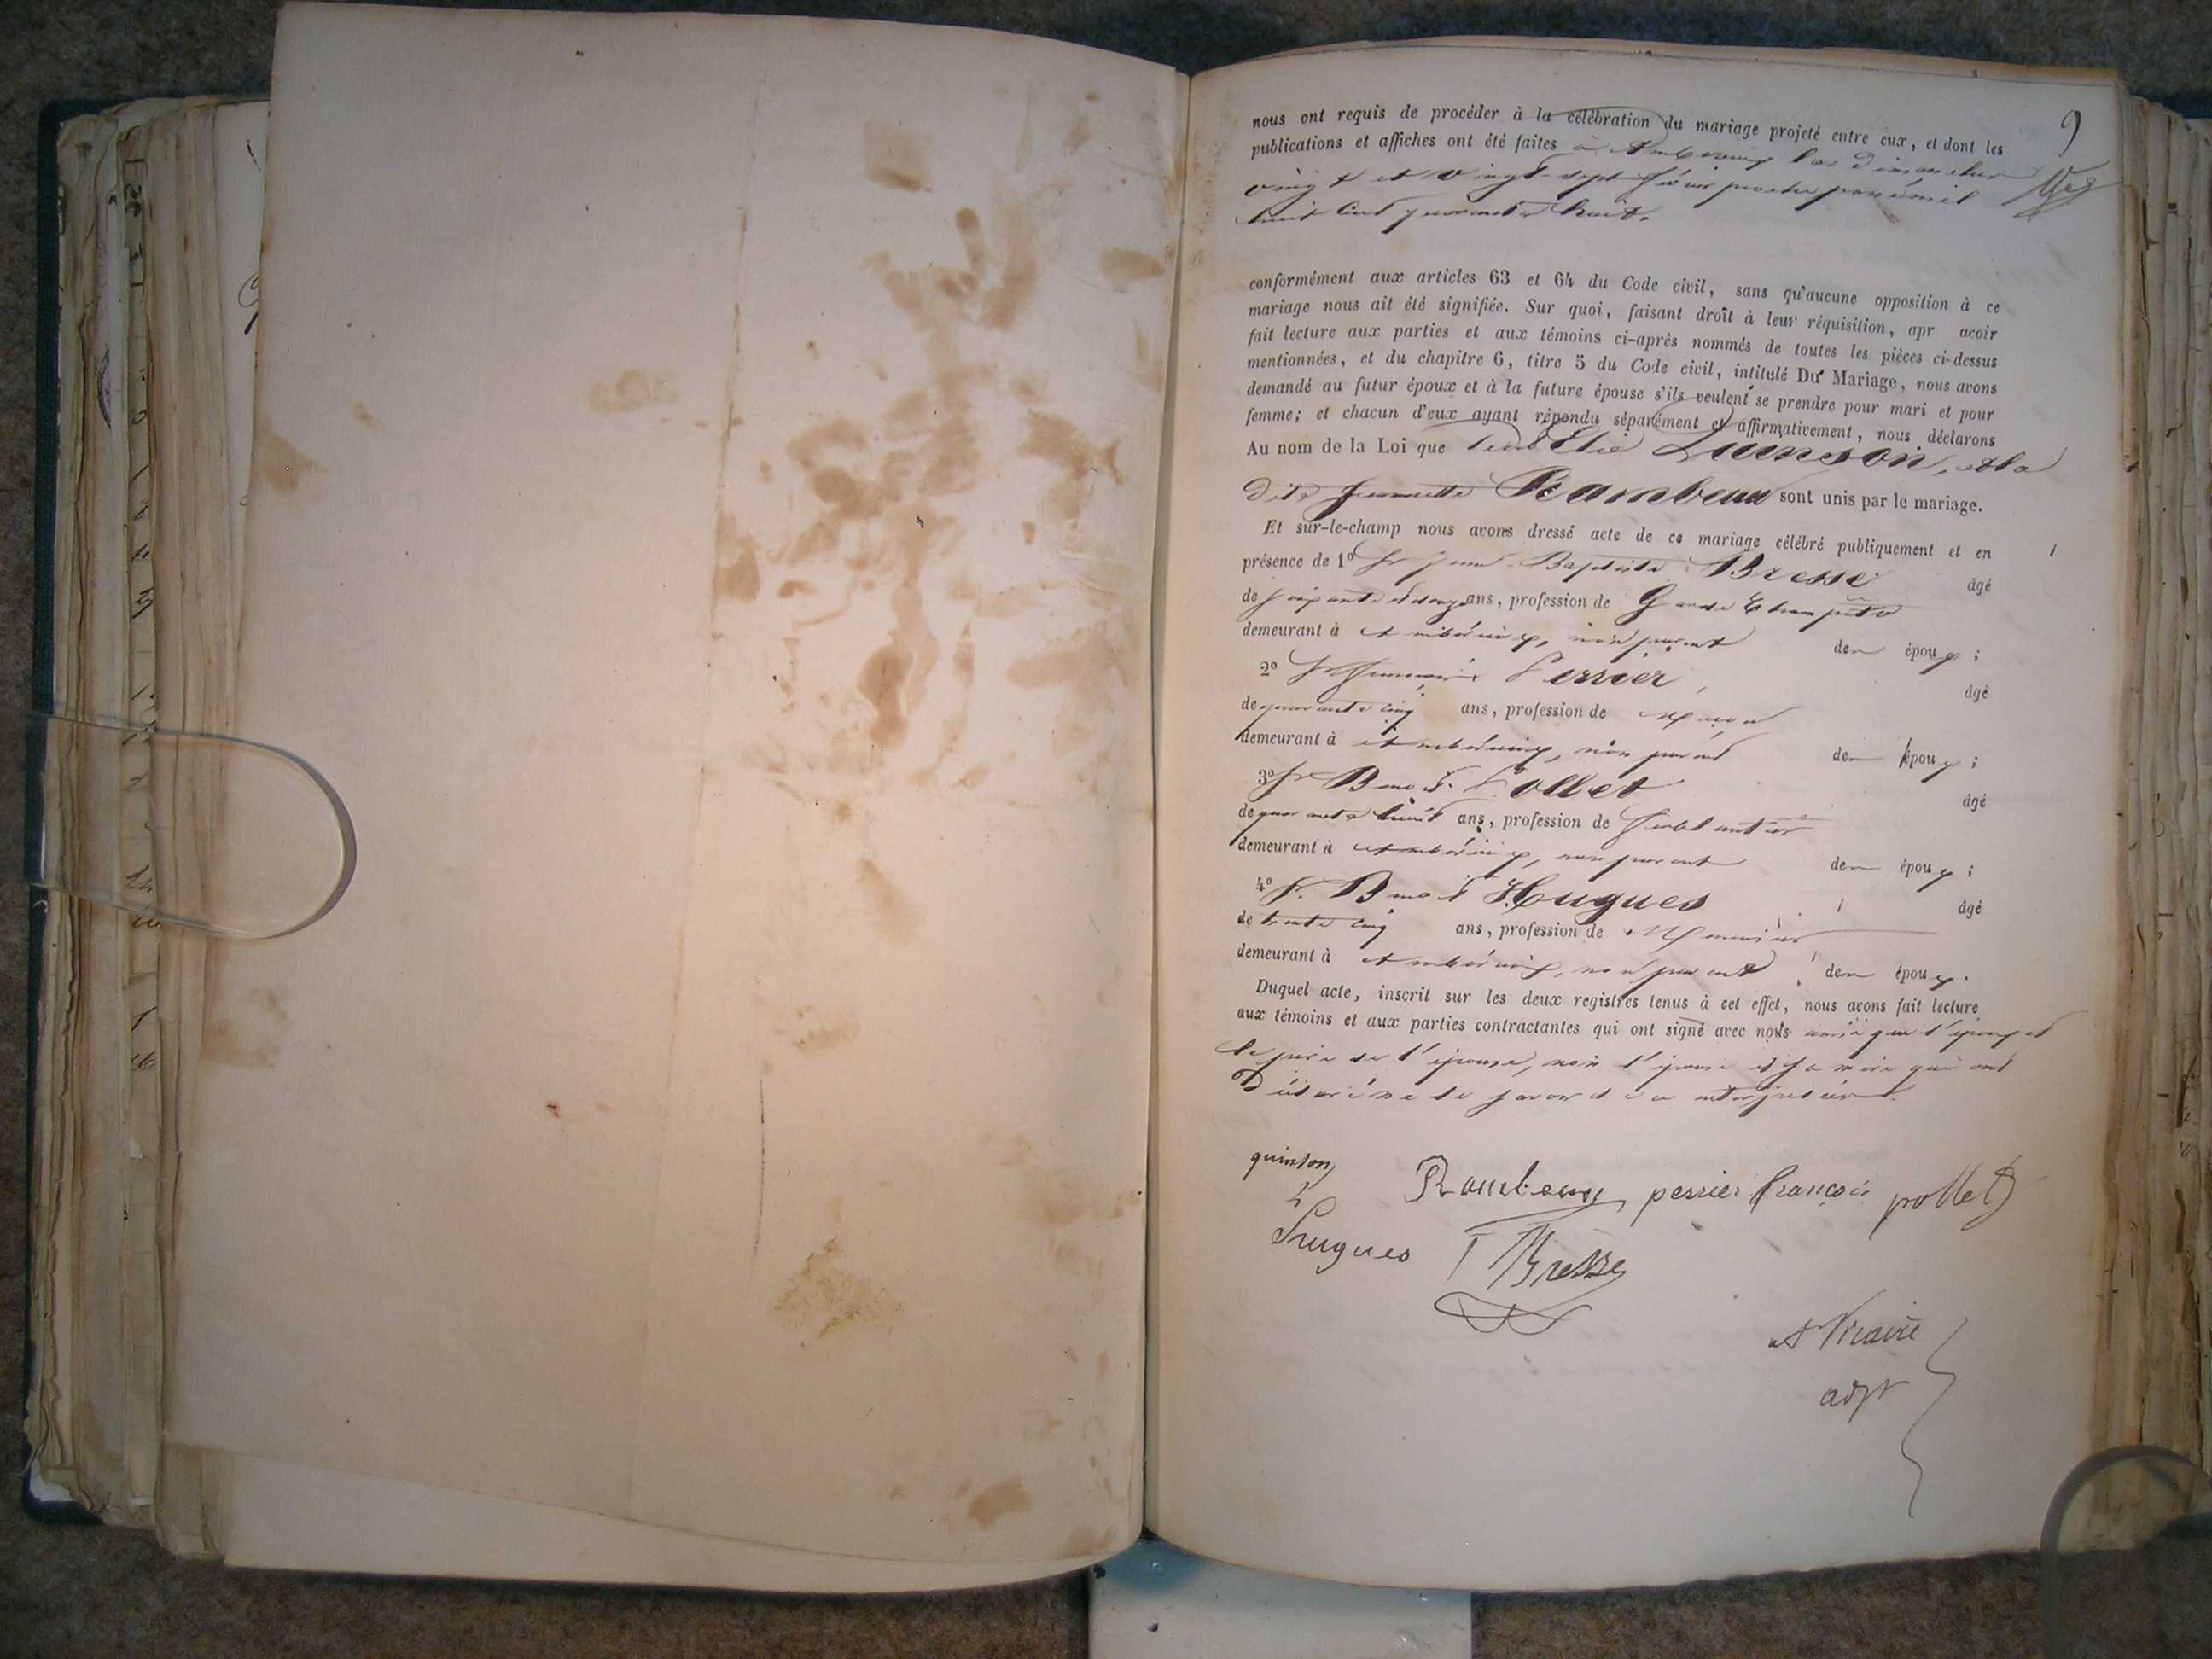 9
nous ont requis de procéder à la célébration du mariage projeté entre eux, et dont les
publications et affiches ont été faites à Ambérieux les dimanches
vingt et vingt-sept février
huit cent quarante huit.
conformément aux articles 63 et 64 du Code civil, sans qu'aucune opposition à ce
mariage nous ait été signifiée. Sur quoi, faisant droit à leur réquisition, apr avoir
fait lecture aux parties et aux témoins ci-après nommés de toutes les pièces ci-dessus
mentionnées, et du chapitre 6, titre 5 du Code civil, intitulé Du Mariage, nous avons
demandé au futur époux et à la future épouse s'ils veulent se prendre pour mari et pour
femme; et chacun d'eux ayant répondu séparément et affirmativement, nous déclarons
Au nom de la Loi que Elie et la
dite Jeannette Rambeau sont unis par le mariage.
Et sur-le-champ nous avons dressé acte de ce mariage célébré publiquement et en
présence de 1º Sr Jean-Baptiste Bresse âgé
de soixante et douze ans, profession de Garde Champêtre
demeurant à Ambérieux, non parent des époux;
2º Sr François Perrier, âgé
de quarante cinq ans, profession de Maçon
demeurant à Ambérieux, non parent des époux;
3º Sr Benoit Pollet âgé
de quarante huit ans, profession de Ferblantier
demeurant à Ambérieux, non parent des époux;
4º Sr Benoit Hugues âgé
de trente cinq ans, profession de Menuisier
demeurant à Ambérieux, non parent des époux.
Duquel acte, inscrit sur les deux registres tenus à cet effet, nous avons fait lecture
aux témoins et aux parties contractantes qui ont signé avec nous ainsi que l'époux et
le père de l'épouse, non l'épouse et sa mère qui ont
déclaré ne le savoir de ce
quinson
Rambeau perrier françois pollet
hugues Bresse